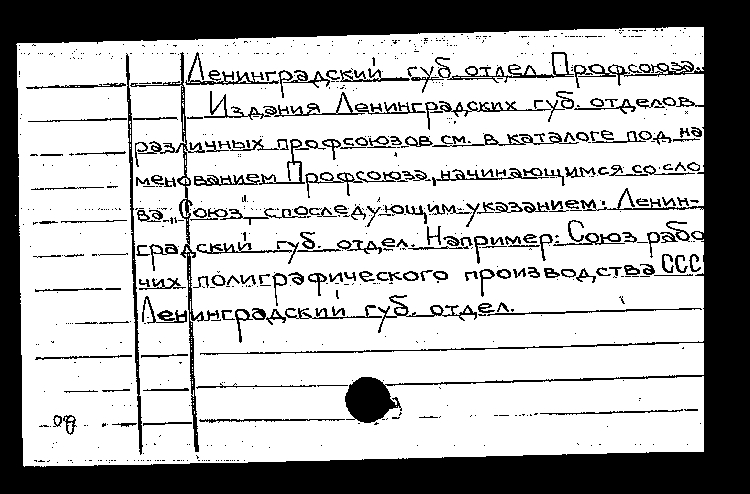 Ленинградский губ. отдел Профсоюза..
Издания Ленинградских губ. отделов
различных профсоюзов см. в каталоге под на
менованием Профсоюза, начинающимся со сло
ва „Союз", с последующим указанием: Ленин-
градский губ. отдел. Например: Союз рабо
чих полиграфического производства СССР
Ленинградский губ. отдел.